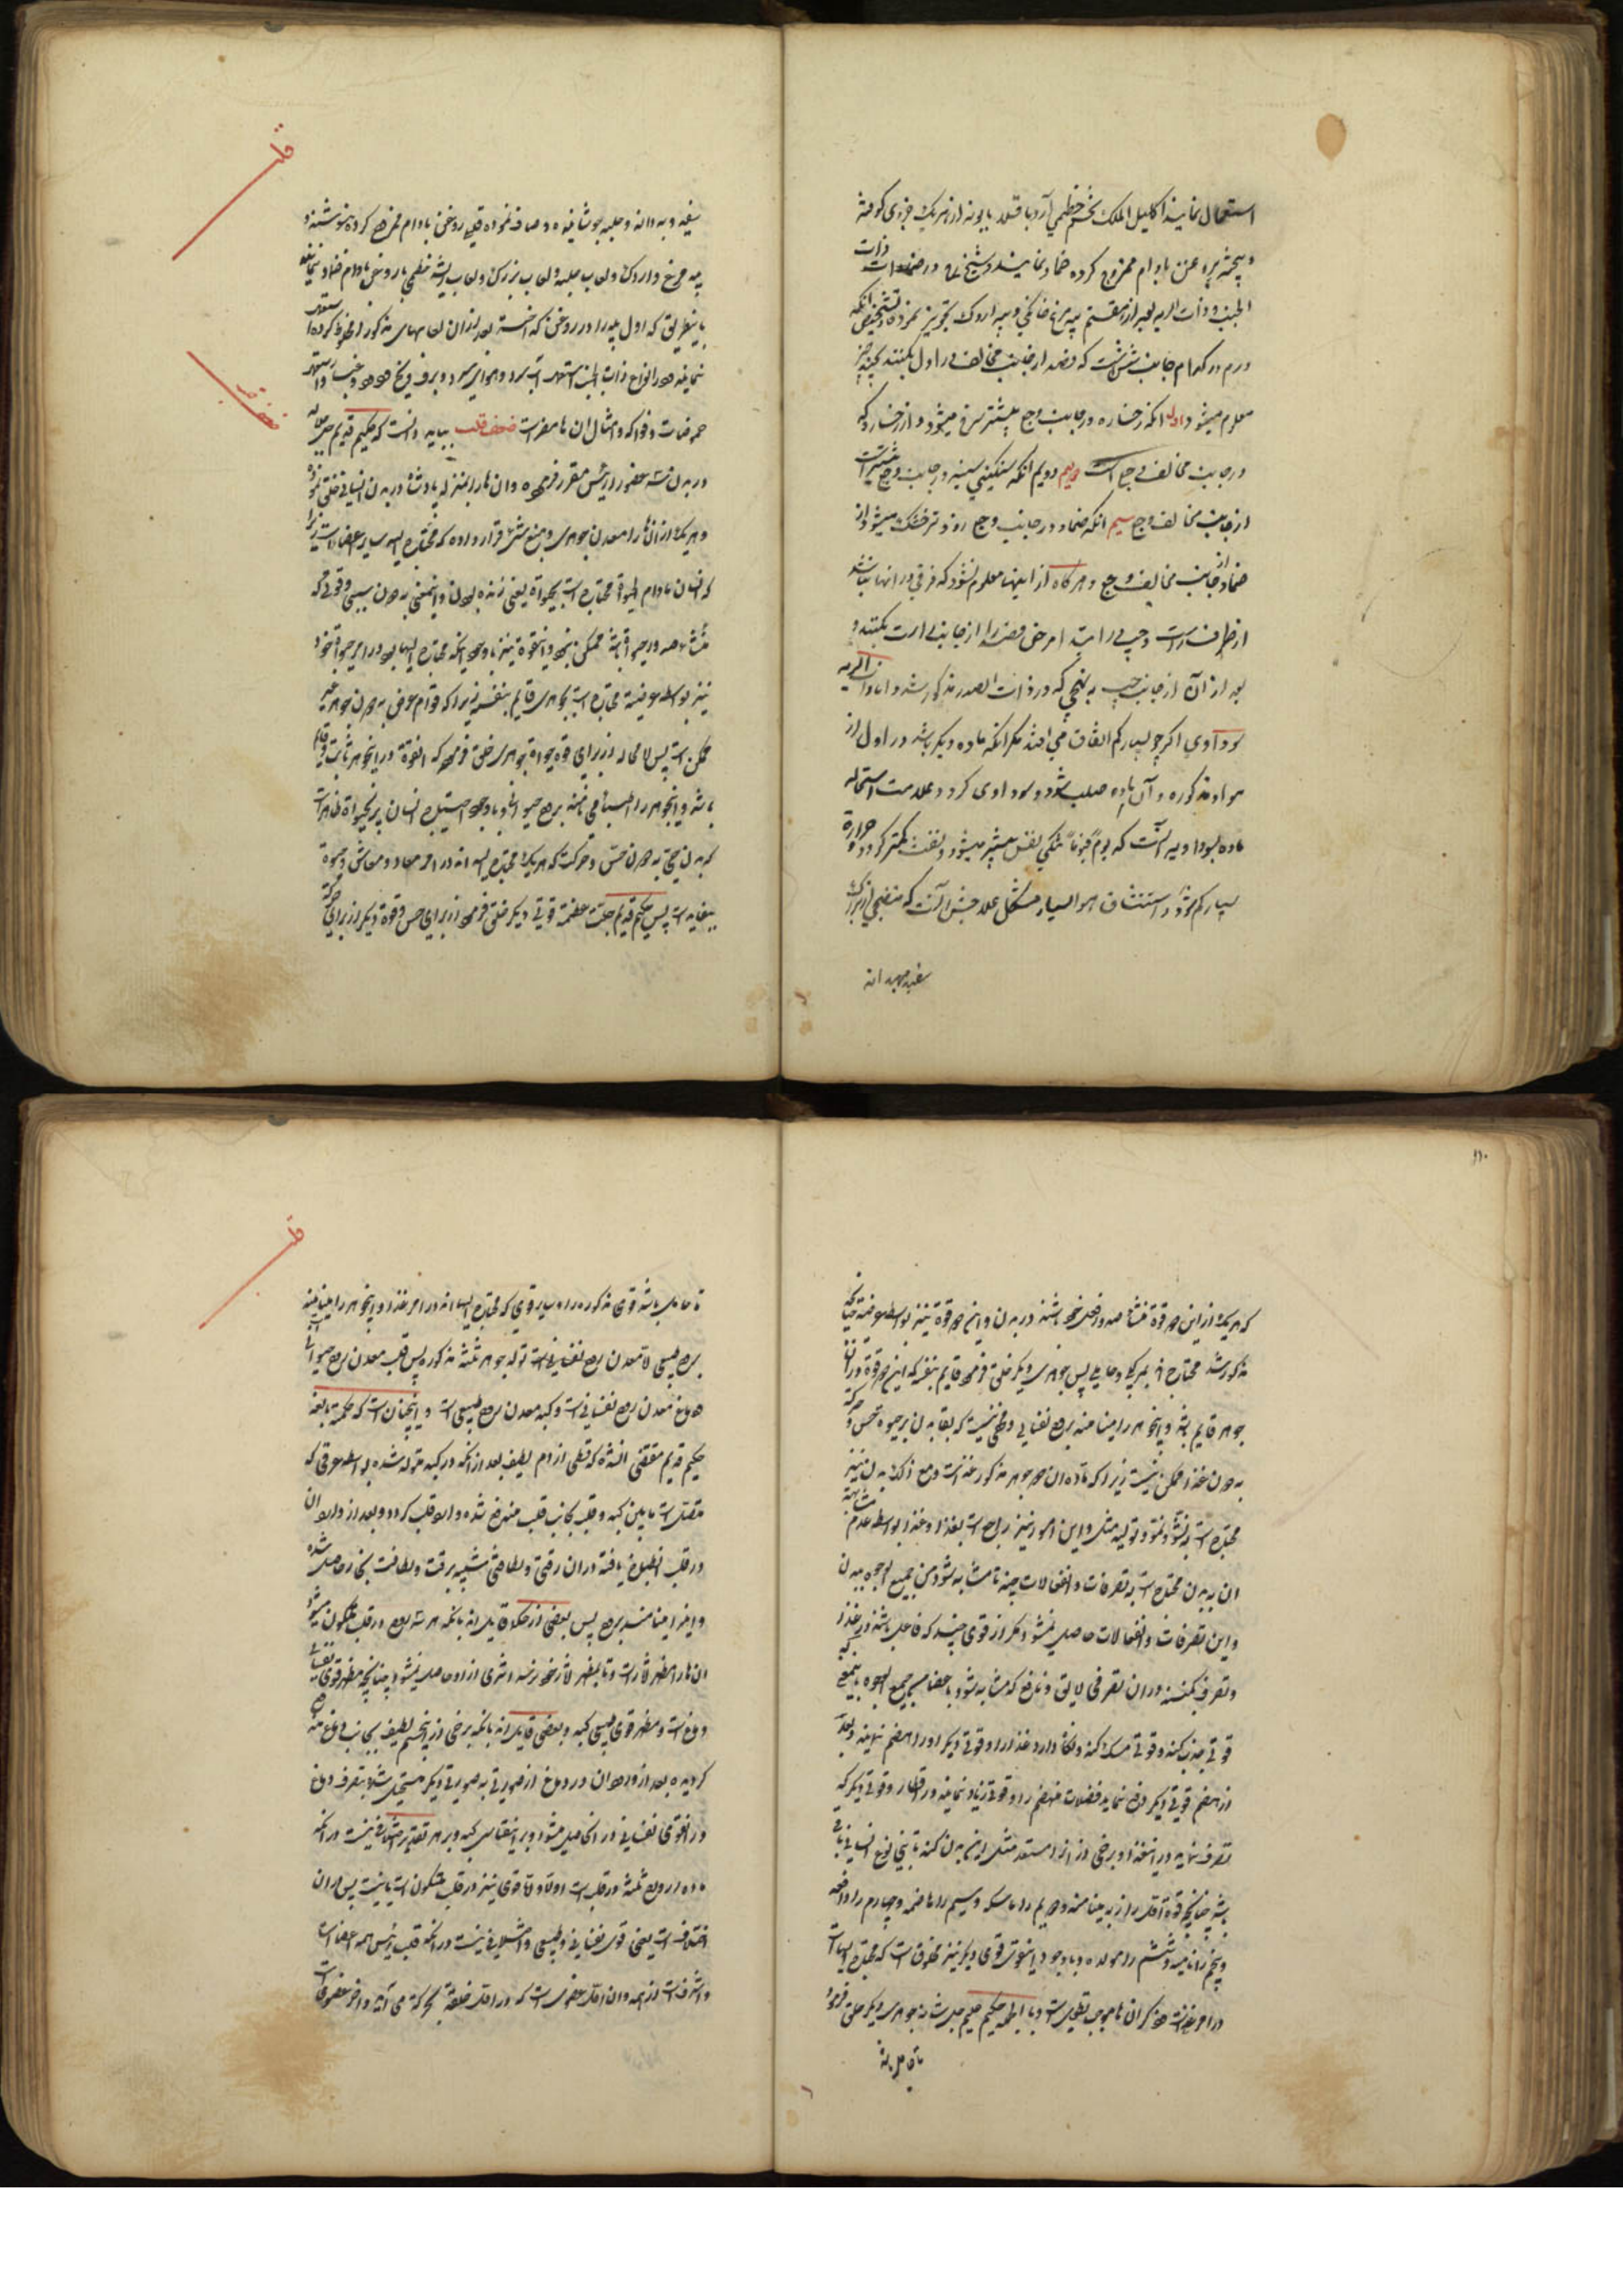 استعمال نمایند اکلیل الملک تخم خطمی آرد باقلا بابونه از هر یک جزوی کوفته
و بیخته بروغن بادام ممزوج کرده ضماد نمایند و شیخ در ضماد ذات
الجنب و ذات الریه بعد از هفتم پیه مرغ خانگی و پیه اردک تجویز نموده و تشخیص آنکه
ورم در کدام جانب شش است که فصد از جانب مخالف را اول بکنند بچند چیز
معلوم میشود اول آنکه رخساره در جانب وجع بیشتر سرخ میشود از رخساره که
در جانب مخالف وجع است دویم آنکه سنگینی سینه در جانب وجع بیشتر است
از جانب مخالف وجع سیم آنکه ضماد در جانب وجع زودتر خشک میشود از
ضماد جانب مخالف وجع و هر گاه از اینها معلوم نشود که فرقی در آنها نباشد
از طرف راست و چپ در ابتدا مرض فصد را از جانب راست بکنند و
بعد از آن از جانب چپ به نهجی که در ذات الصدر مذکور شد و اما ذات الریه
سوداوی اگر چه بسیار کم اتفاق می افتد مگر آنکه ماده دیگر باشد در اول از
مواد مذکوره و آن ماده صلب شود و سوداوی گردد و علامت استحاله
ماده بسوداویه آنست که یوما فیوما تنگی نفس بیشتر میشود و نفث کمتر گردد و حرارة
بسیار کم شود و استنشاق هوا بسیار مشکل علاجش آنست که منضجی از بزرک
سفید و بهدانه
سفید و بهدانه و حلبه جوشانیده و صاف نموده قلیل روغن بادام ممزوج کرده بنوشند و
پیه مرغ و اردک و لعاب حلبه و لعاب بزرک و لعاب ریشه خطمی با روغن بادام ضماد نمایند
باینطریق که اول پیه را در روغن گداخته بعد از آن لعابهای مذکور را مخلوط کرده استعمال
نمایند در انواع ذات الجنب استعمال آب سرد و هوای سرد و برف و یخ
حموضات و فواکه و امثال آن ها مضر است ضعف قلب بباید دانست که حکیم قدیم جل جلاله
در بدن سه عضو را رئیس مقرر فرموده و آن ها را بمنزله پادشاه در بدن انسانی خلق نموده
و هر یک از آنها را معدن جوهری و منبع قرار داده که محتاج الیه سایر اعضا است زیرا
که انسان مادام الحیوة محتاج است بحیوة یعنی زنده بودن و اینمعنی بدون سببی و قوتی که
منشأ صدور حیوة باشد ممکن نیست و اینقوة نیز با وجود آنکه محتاج الیها بود در امر حیوة خود
نیز بواسطه عرضیت محتاج است بجوهری قایم بنفسه زیرا که قوام عرض بدون جوهر غیر
ممکن است پس لا محاله از برای قوه حیوة جوهری خلق فرمود که آنقوة در آنجوهر ثابت و قایم
باشد و اینجوهر را اطبا می نامند بروح حیوانی و با وجود احتیاج انسان بر حیوة ظاهر است
که بدن حی بدون حس و حرکت که هر یک محتاج الیه اند در امر معاد و معاش وجودش
بیفایده است پس حکیم قدیم جلت عظمته قوتی دیگر خلق فرمود از برای حس و قوة دیگر از برای حرکة
۱۱۰
که هر یک از این دو قوة منشأ صدور فعل خود باشند در بدن و این دو قوة نیز بواسطه عرضیت چنانکه
مذکور شد محتاج اند بمحلی و حاملی پس جوهری دیگر خلق فرمود قایم بنفسه که این دو قوة در آن
جوهر قایم باشد و اینجوهر را مینامند بروح نفسانی و مخفی نیست که بقا بدن بر حیوة و حس و حرکة
بدون غذا ممکن نیست زیرا که ماده آن دو جوهر مذکور غذا است و مع ذلک بدن نیز
محتاج است به نشو و نمو و تولید مثل و این امور نیز راجع است بغذا و غذا بواسطه عدم مشابهت
آن ببدن محتاج است به تصرفات و انفعالات چند تا مشابه شود من جمیع الوجوه ببدن
و این تصرفات و انفعالات حاصل نمیشود مگر از قوی چند که فاعل باشند در غذا
و تصرف کنند در آن تصرفی لایق و نافع که مشابه شود باعضا من جمیع الوجوه یعنی
قوتی جذب کند و قوتی مسک کند و نگاه دارد غذا را و قوتی دیگر او را هضم نماید و بعد
از هضم قوتی دیگر دفع نماید فضلات هضم را و قوتی زیاد نماید در اقطار و قوتی دیگر که
تصرف نماید در اینغذا و برخی از آنرا مستعد مثل این بدن کند تا شخص نوع انسانی باقی
باشد چنانچه قوة اول را جاذبه مینامند و دویم را ماسکه و سیم را هاضمه و چهارم را دافعه
و پنجم را نامیه و ششم را مولده و با وجود اینقوی قوی دیگر نیز مخلوق است که محتاج الیهاست
در امر غذا که ذکر آن ها موجب تطویل است و بالجمله حکیم علیم جل شانه جوهری دیگر خلق فرموده
تا حامل باشد
تا حامل باشد قوی مذکوره را و سایر قوی که محتاج الیها اند در امر غذا و اینجوهر را مینامند
بروح طبیعی تا معدن روح نفسانی است تولد جوهر ثلثه مذکوره پس قلب معدن روح حیوانی است
و دماغ معدن روح نفسانی است و کبد معدن روح طبیعی است و اینچنان است که حکمة بالغه
حکیم قدیم مقتضی آنشده که قسطی از دم لطیف بعد از آنکه در کبد متولد شده بواسطه عرقی که
متصل است مابین کبد و قلب بجانب قلب منصرف شده داخل قلب گردد و بعد از دخول آن
در قلب انطباخ یافته در آن رقتی و لطافتی شبیه برقت و لطافت بخار حاصل شده
و آنرا مینامند بروح پس بعضی از حکما قایل اند بانکه هر سه روح در قلب متکون میشود
آن ها را مظهر آثار است و تا بمظهر آثار خود نرسد اثری از او حاصل نمیشود چنانچه مظهر قوی نفسانیه
دماغ است و مظهر قوی طبیعی کبد و بعضی قایل اند بانکه برخی از این جسم لطیف بجانب دماغ متوجه
گردیده بعد از دخول آن در دماغ از صورتی به صورتی دیگر مستحیل شده بتصرف دماغ
در آن قوی نفسانی در آن حاصل میشود و بر اینقیاس کبد و بر هر تقدیر اختلافی نیست در آنکه
ماده ارواح ثلثه در قلب است اولا و اما قوی نیز در قلب متکون است یا نیست پس در آن
اختلاف است یعنی قوی نفسانی و طبیعی و اختلافی نیست در آنکه قلب رئیس همه اعضا است
و اشرف است از همه و آن اول عضوی است که در اول خلقة بحرکة می آید و آخر عضو است
قلب
ضعف قلب
قلب